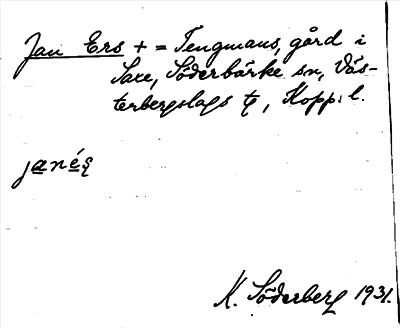 Jan Ers + = Tengmans, gård i
Saxe, Söderbärke sn, Väs-
terbergslags tg, Kopp. l.
janés
K. Söderberg 1931.